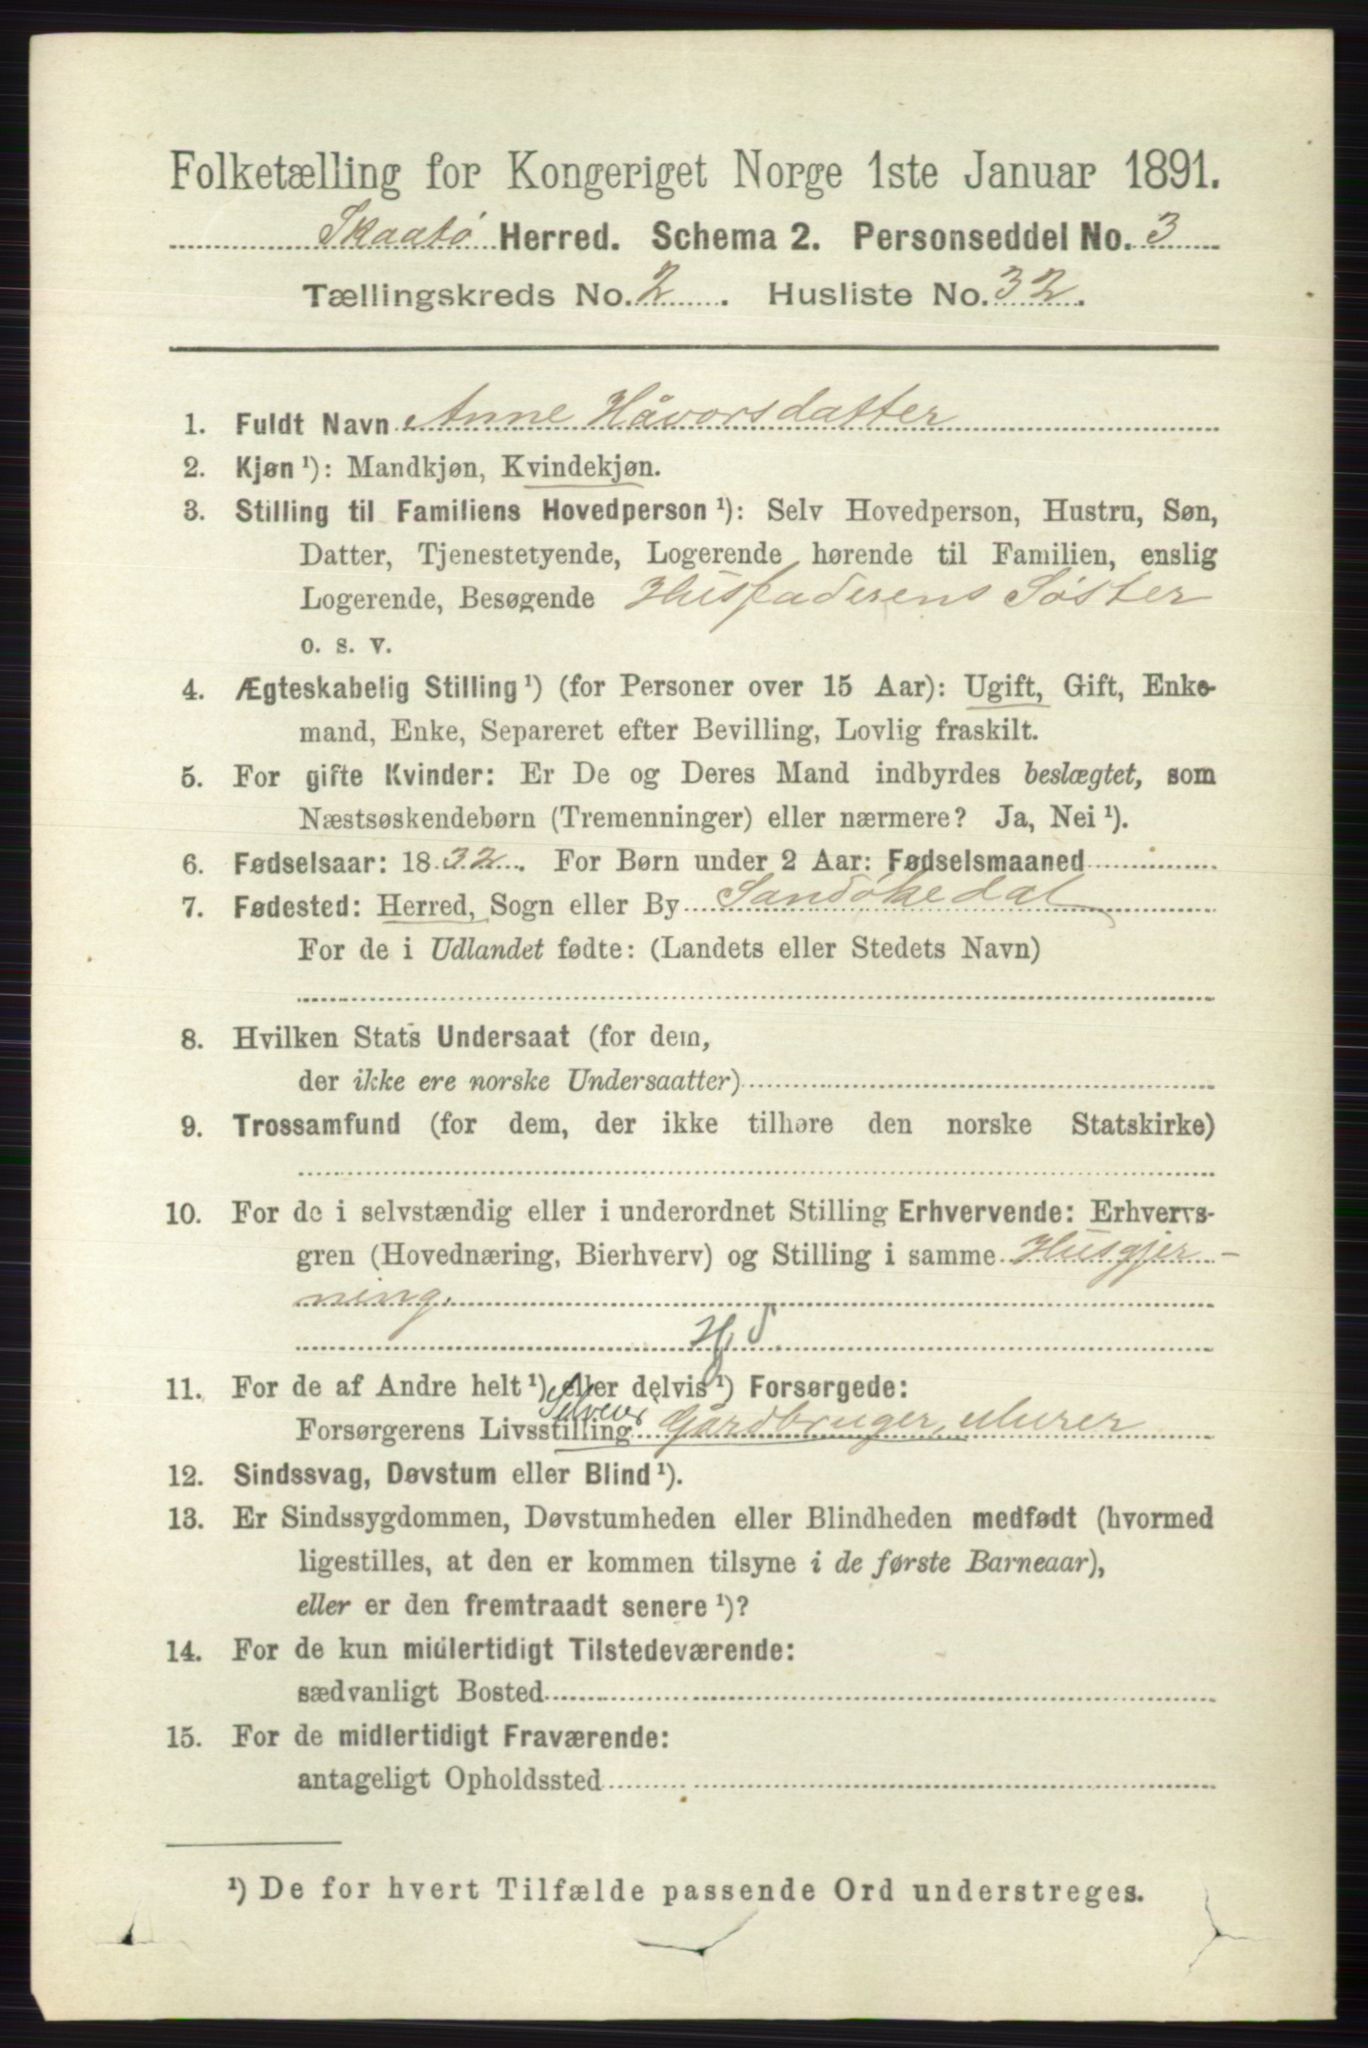 Folketælling for Kongeriget Norge 1ste Januar 1891.
Skaatø Herred. Schema 2. Personseddel No. 3
Tællingskreds No. 2. Husliste No. 32.
1. Fuldt Navn Anne Håvorsdatter
2. Kjøn ¹): Mandkjøn, Kvindekjøn.
3. Stilling til Familiens Hovedperson ¹): Selv Hovedperson, Hustru, Søn,
Datter, Tjenestetyende, Logerende hørende til Familien, enslig
Logerende, Besøgende Husfaderens Søster
o. s. v.
4. Ægteskabelig Stilling ¹) (for Personer over 15 Aar): Ugift, Gift, Enke-
mand, Enke, Separeret efter Bevilling, Lovlig fraskilt.
5. For gifte Kvinder: Er De og Deres Mand indbyrdes beslægtet, som
Næstsøskendebørn (Tremenninger) eller nærmere? Ja, Nei ¹).
6. Fødselsaar: 1832. For Børn under 2 Aar: Fødselsmaaned
7. Fødested: Herred, Sogn eller By Sandøkedal
For de i Udlandet fødte: (Landets eller Stedets Navn)
8. Hvilken Stats Undersaat (for dem,
der ikke ere norske Undersaatter)
9. Trossamfund (for dem, der ikke tilhøre den norske Statskirke)
10. For de i selvstændig eller i underordnet Stilling Erhvervende: Erhvervs-
gren (Hovednæring, Bierhverv) og Stilling i samme Husgjer-
ning.
11. For de af Andre helt ¹) eller delvis ¹) Forsørgede:
Selveier
Forsørgerens Livsstilling Gårdbruger,
12. Sindssvag, Døvstum eller Blind ¹).
13. Er Sindssygdommen, Døvstumheden eller Blindheden medfødt (hvormed
ligestilles, at den er kommen tilsyne i de første Barneaar),
eller er den fremtraadt senere ¹)?
14. For de kun midlertidigt Tilstedeværende:
sædvanligt Bosted
15. For de midlertidigt Fraværende:
antageligt Opholdssted
¹) De for hvert Tilfælde passende Ord understreges.